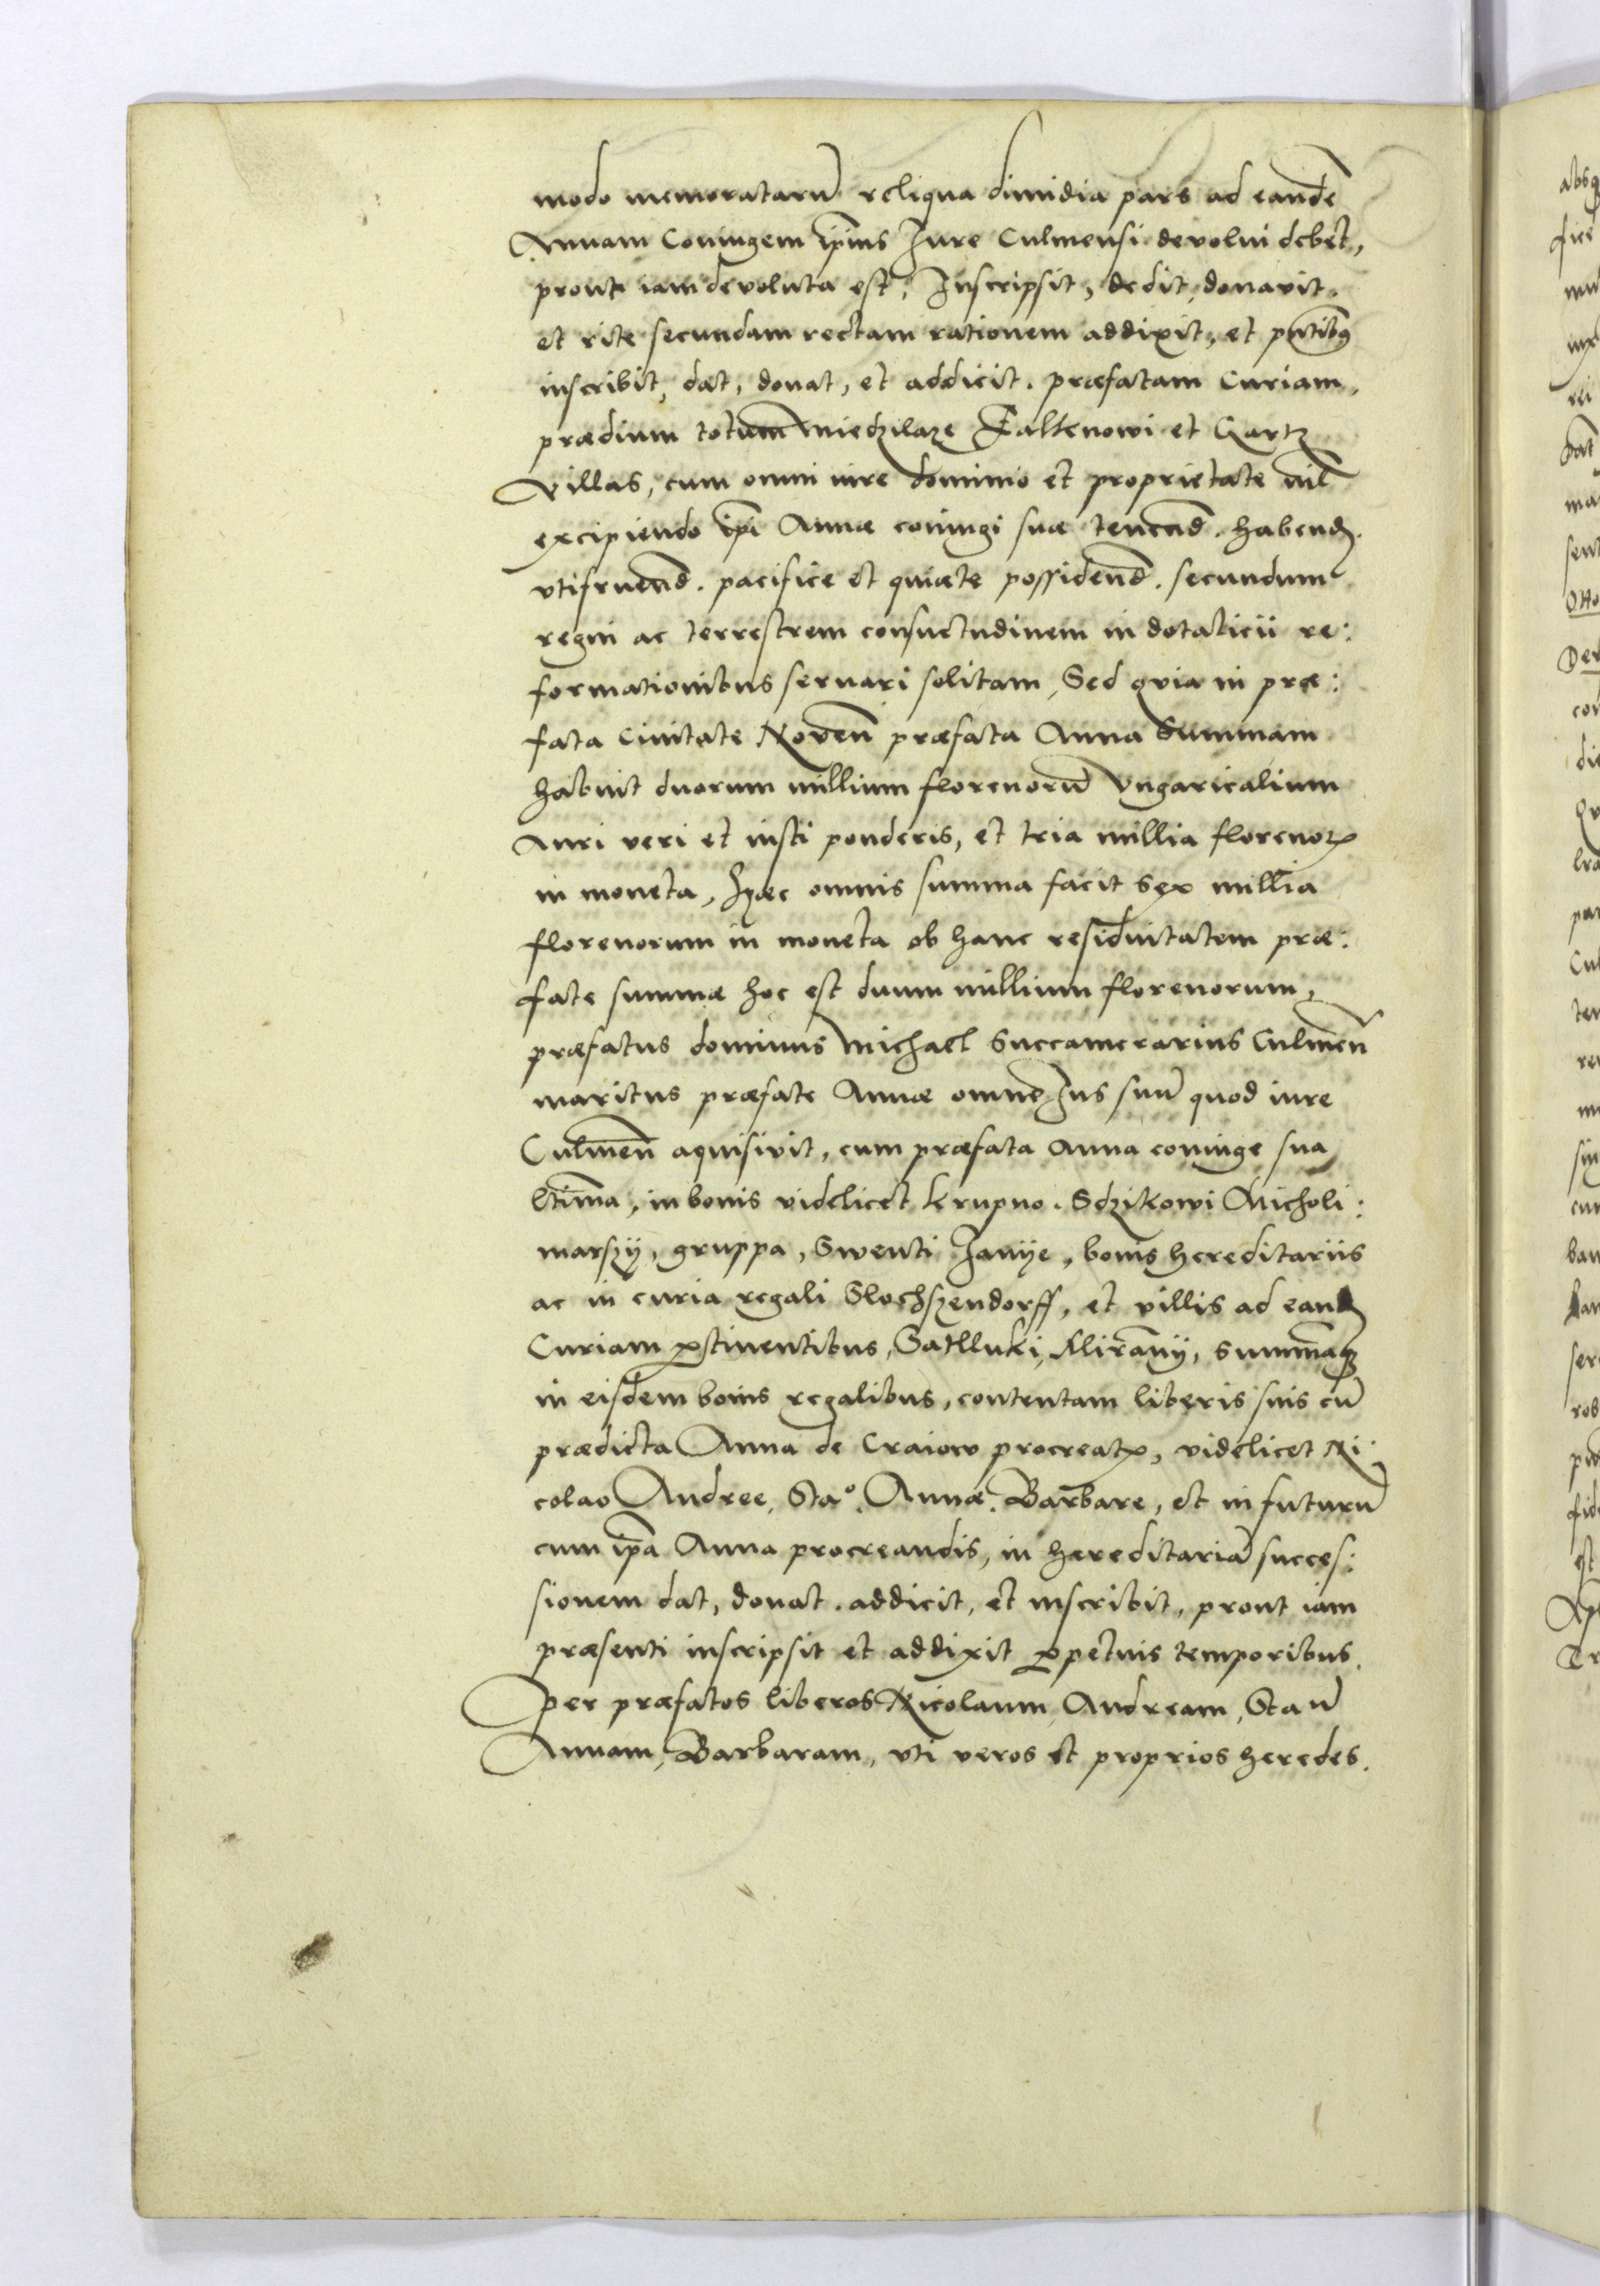 modo memoratarū reliqua dimidia pars ad eandē
Annam Coniugem ip̄ius Jure Culmensi devolui debet,
prout iam devoluta est, Inscripsit, dedit, donavit.
et rite secundam rectam rationem addixit, et pn̄tibus
inscribit, dat, donat, et addicit. præfatam Curiam,
prædium totum miedzilaze Falkenowi et Gartz
Villas, cum omni iure dominio et proprietate nil
excipiendo ip̄i Annæ coniugi suæ tenend. habend.
vtifruend. pacifice et quiæte possidend. secundum
regni ac terrestrem consuetudinem in dotalicii re:
formationibus seruari solitam, Sed quia in præ:
fata Ciuitate Noven̄ præfata Anna Summam
habuit duorum millium florenorū Vngaricalium
Auri veri et iusti ponderis, et tria millia florenoꝝ
in moneta, Hæc omnis summa facit Sex millia
florenorum in moneta ob hanc residuitatem præ:
fate summæ hoc est duum millium florenorum,
præfatus dominus Michael Succamerarius Culmen̄
maritus præfate Annæ omne Jus suū quod iure
Culmen̄ aquisivit, cum præfata Anna coniuge sua
l̄tima, in bonis videlicet krupno. Sdzikowi Micholi:
marszÿ, gruppa, Swenti Janÿe, bonis hereditariis
ac in curia regali Slochszendorff, et villis ad eand
Curiam ꝑtinentibus, Satlluki, Miranÿ, Summaqꝫ
in eisdem bonis regalibus, contentam liberis suis cū
prædicta Anna de Craiow procreatꝭ, videlicet Ni:
colao Andree, Staº. Annæ. Barbare, et in futurū
cum ip̄a Anna procreandis, in hereditariā succes:
sionem dat, donat. addicit, et inscribit, prout iam
præsenti inscripsit et addixit ꝑpetuis temporibus.
Per præfatos liberos Nicolaum, Andream, Staū
Annam, Barbaram, vti veros et proprios heredes.